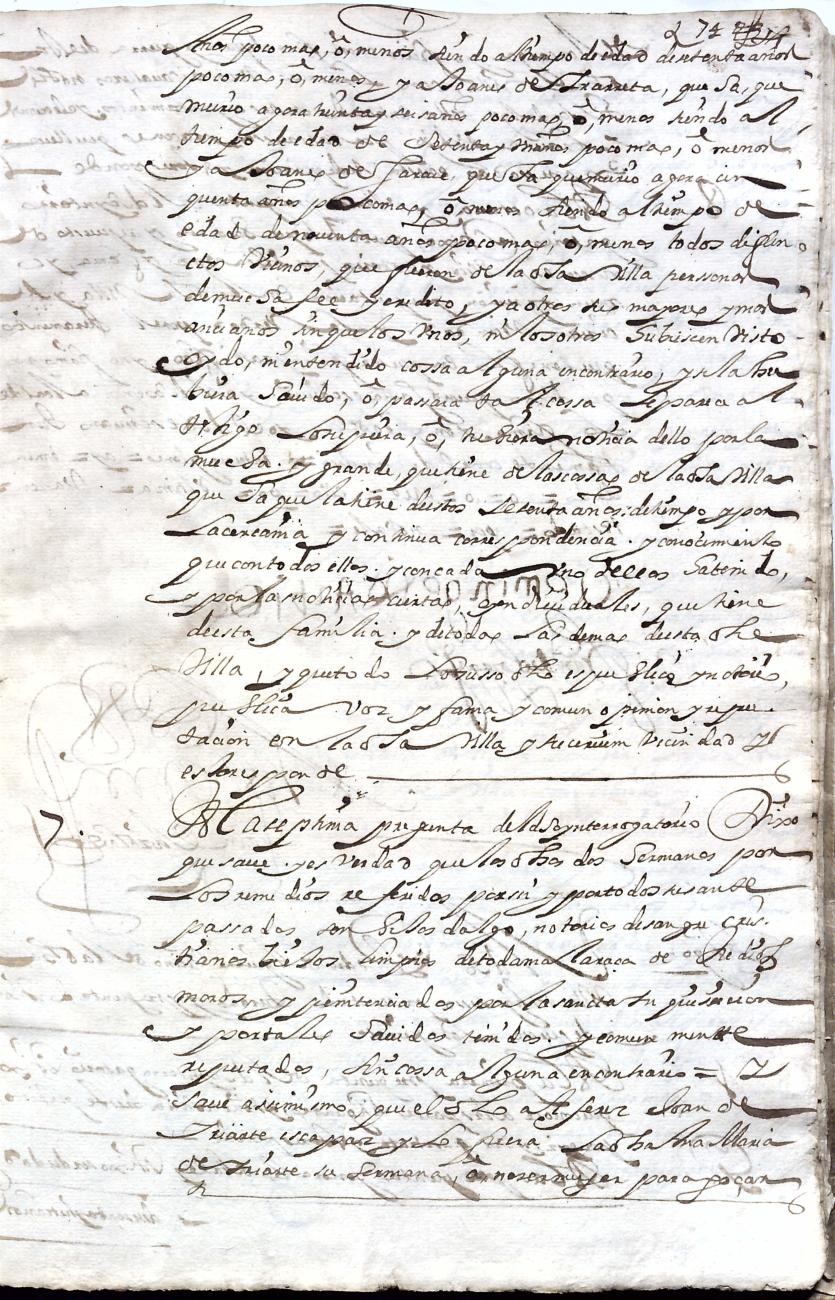 274
años poco mas, ô, menos siendo al tiempo de edad de setenta años
poco mas, ô, menos y a Joanes de Yrarreta, que ha, que
murio agora treinta y seis años poco mas, ô, menos siendo al
tiempo de edad de setenta y años poco mas, ô menos
y a Joanes de que ha que murio agora cin
quenta años poco mas, ô menos siendo al tiempo de
edad de noventa años poco mas, ô, menos todos difun
ctos vecinos, que fueron de la dha Villa personas
de mucha fee y credito, y a otros sus mayores y mas
ancianos sin que los Unos, ni los otros hubiesen Visto
oydo, ni entendido cossa alguna en contrario, y si la hu
biera havido, ô, passara tal cossa le parece al
testigo lo supiera, ô, tubiera noticia dello por la
mucha. y grande, que tiene de las cossas de la dha Villa
que ha que la tiene de estos setenta años de tiempo y por
la cercania y continua correspondencia. y conocimiento
que con todos ellos. y con cada Uno dellos ha tenido,
y por las noticias ciertas, e yndividuales, que tiene
de esta familia. y de todas las demas de esta dhe
Villa, y que todo lo susso dho es publico y notorio,
publica voz y fama y comun opinion y repu
tacion en la dha Villa y su cercana Vecindad y
esto responde
7. A la septima pregunta del dho ynterrogatorio Dixo
que save. y es Verdad que los dhos dos hermanos por
los remedios referidos por si y por todos sus ante
passados son hijos dalgo, notorios de sangre chris
tianos biejos limpios de toda mala raça de Judios
moros, y penitenciados por la sancta Inquisicion
y por tales havidos tenidos. y comun mente
reputados, sin cossa alguna en contrario = y
save asimismo, que el dho Alferez Joan de
Yriarte es capaz y lo fuera la dha Ana Maria
de Yriarte su hermana, â no ser muger para goçar